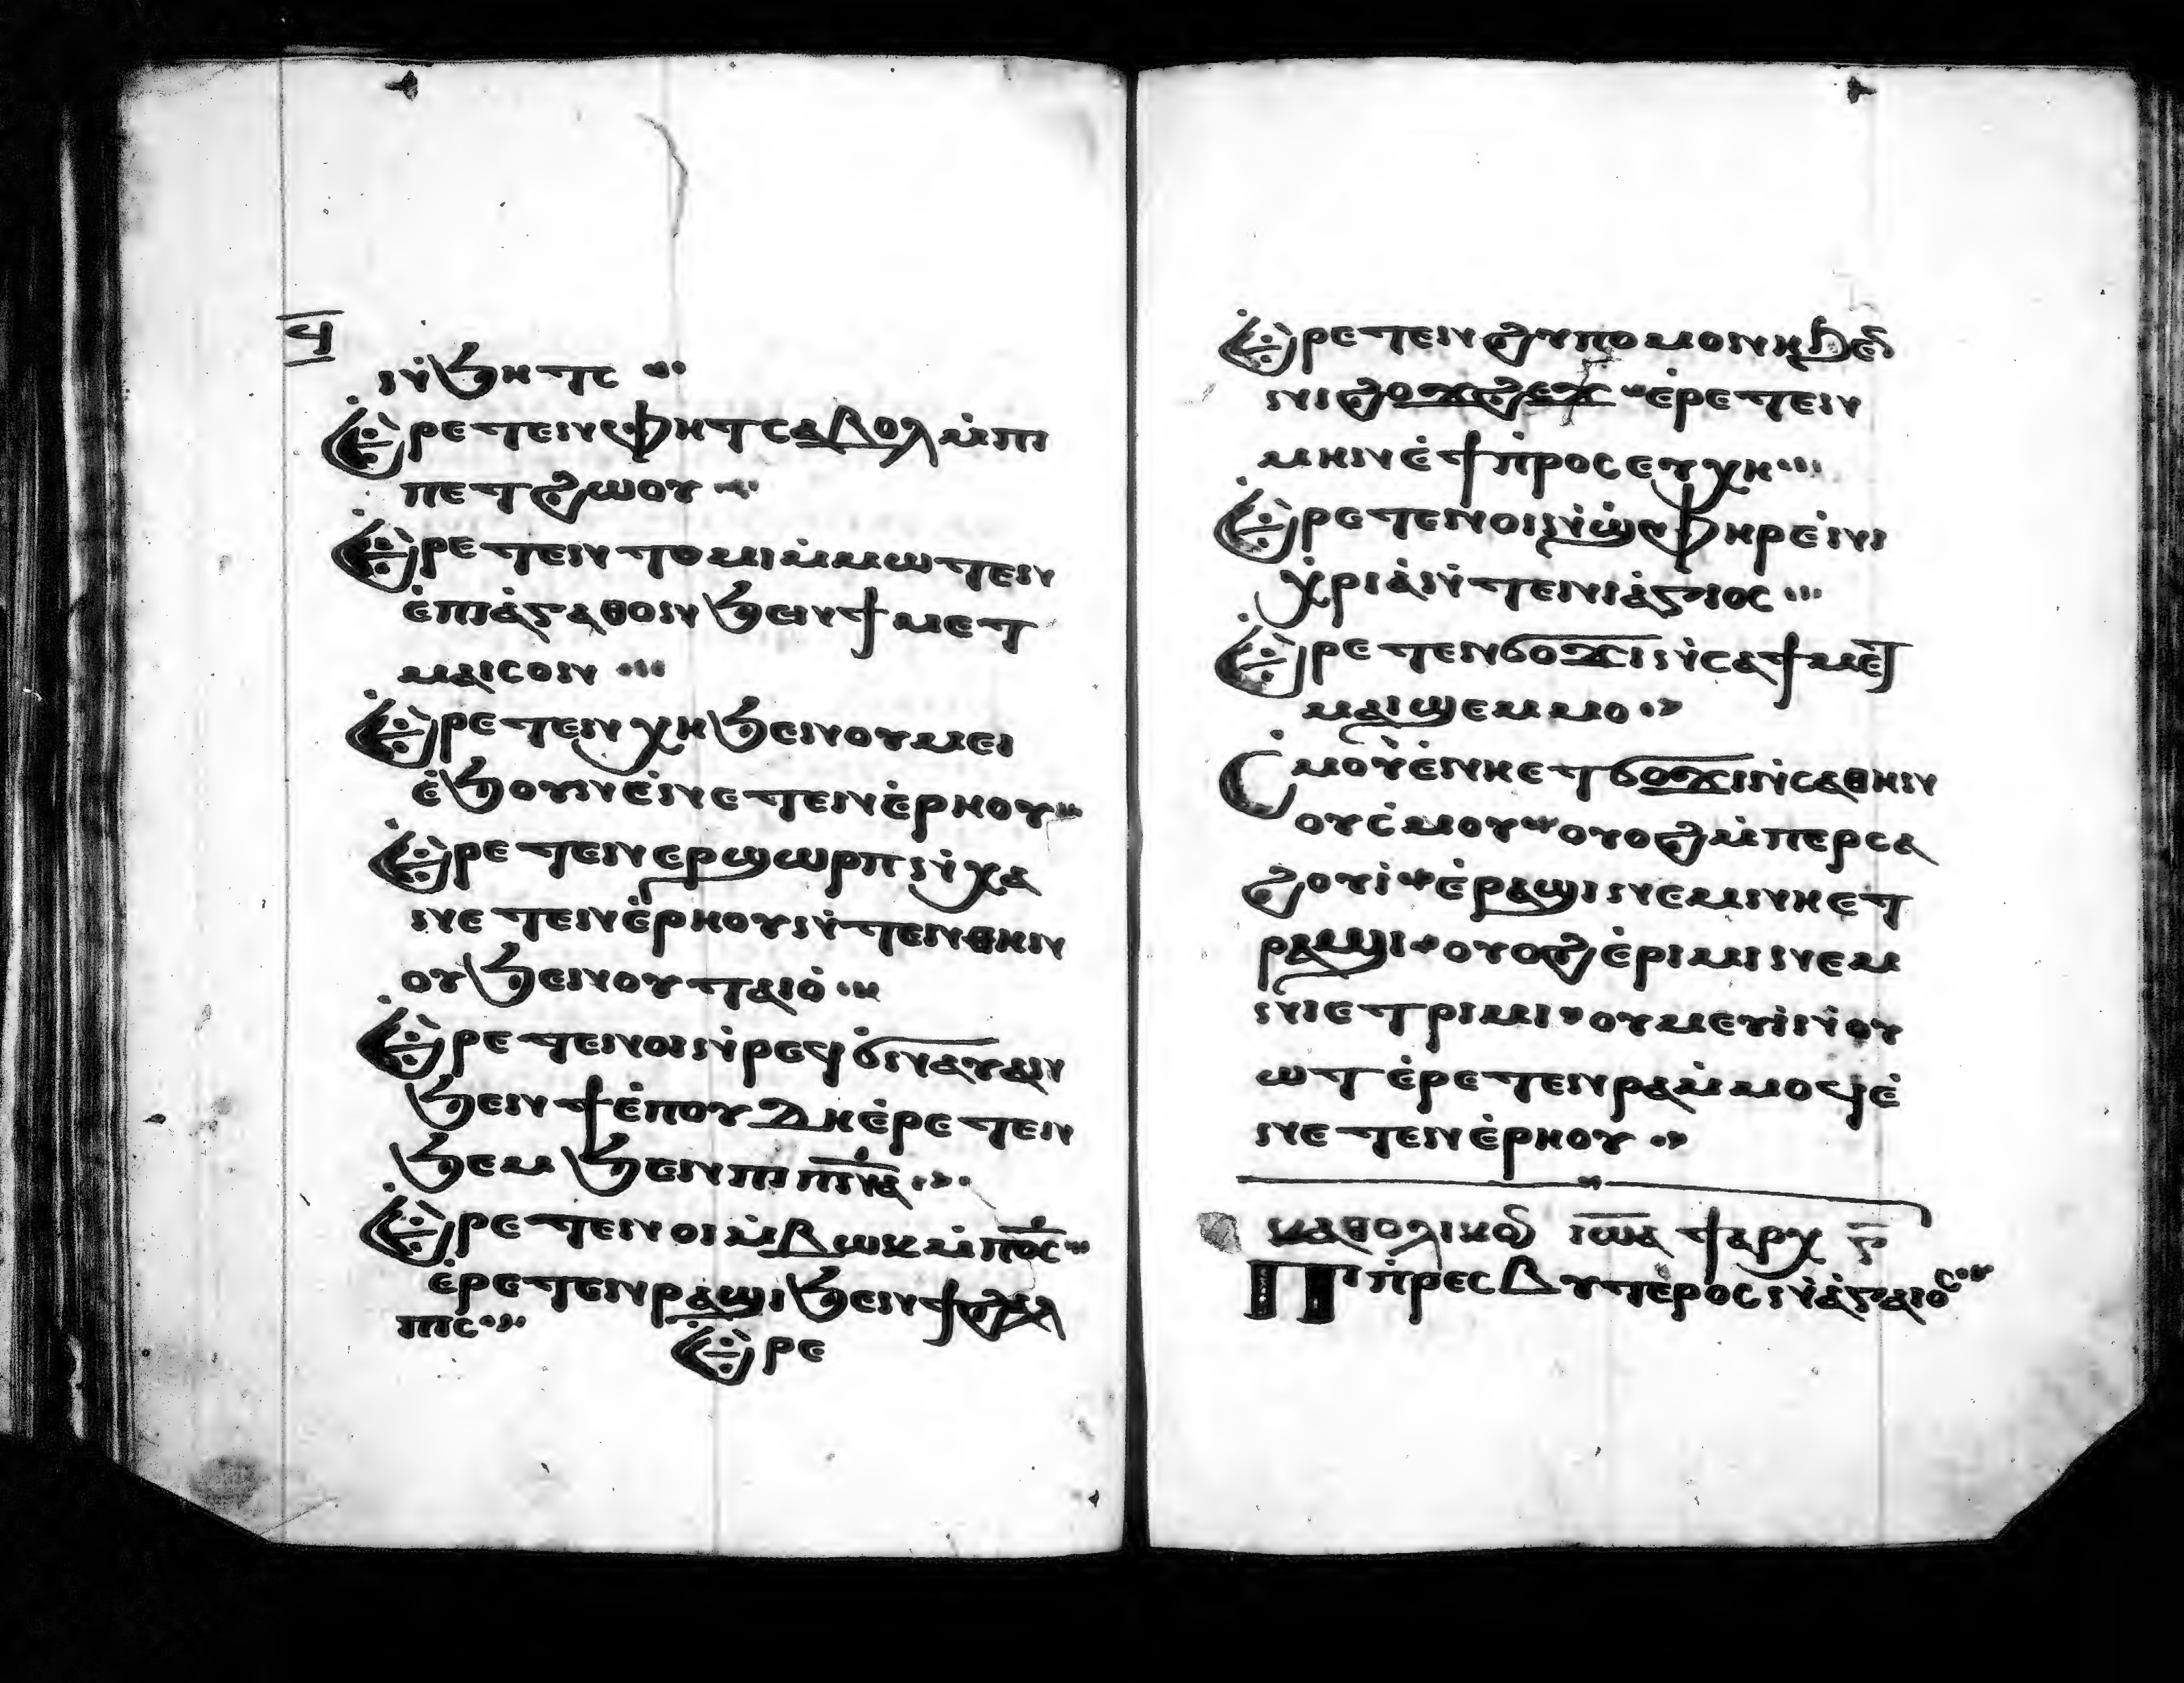 ϥ
ⲛ̀ϧⲏⲧⲥ
Ⲉ̀ⲣⲉⲧⲉⲛⲫⲏⲧ ⲥⲁⲃⲟⲗ ⲙ̀ⲡⲓ
ⲡⲉⲧϩⲱⲟⲩ
Ⲉ̀ⲣⲉⲧⲉⲛⲧⲟⲙⲓ ⲙ̀ⲙⲱⲧⲉⲛ
ⲉ̀ⲡⲓⲁ̀ⲅⲁⲑⲟⲛ ϧⲉⲛϯⲙⲉⲧ
ⲙⲁⲓⲥⲟⲛ
Ⲉ̀ⲣⲉⲧⲉⲛⲭⲏ ϧⲉⲛⲟⲩⲙⲉⲓ
ⲉ̀ϧⲟⲩⲛ ⲉ̀ⲛⲉⲧⲉⲛⲉ̀ⲣⲏⲟⲩ
Ⲉ̀ⲣⲉⲧⲉⲛⲉⲣϣⲱⲣⲡ ⲛ̀ⲭⲁ
ⲛⲉⲧⲉⲛⲉ̀ⲣⲏⲟⲩ ⲛ̀ⲧⲉⲛⲑⲏⲛ
ⲟⲩ ϧⲉⲛⲟⲩⲧⲁⲓⲟ̀
Ⲉ̀ⲣⲉⲧⲉⲛⲟⲓ ⲛ̀ⲣⲉϥϭⲛⲁⲩ ⲁⲛ
ϧⲉⲛϯⲉ̀ⲡⲟⲩⲇⲏ ⲉ̀ⲣⲉⲧⲉⲛ
ϧⲉⲙ ϧⲉⲛⲡⲓⲡ̅ⲛ̅ⲁ̅
Ⲉ̀ⲣⲉⲧⲉⲛⲟⲓ ⲙ̀ⲃⲱⲕ ⲙ̀ⲡⲟ̅ⲥ̅
ⲉ̀ⲣⲉⲧⲉⲛⲣⲁϣⲓ ϧⲉⲛϯϩⲉⲗ
ⲡⲓⲥ
Ⲉ̀ⲣⲉ
Ⲉ̀ⲣⲉⲧⲉⲛϩⲩⲡⲟⲙⲟⲛⲏ ϧⲉⲛ
ⲛⲓϩⲟϫϩⲉϫ ⲉ̀ⲣⲉⲧⲉⲛ
ⲙⲏⲛ ⲉ̀ϯⲡ̀ⲣⲟⲥⲉⲩⲭⲏ
Ⲉ̀ⲣⲉⲧⲉⲛⲟⲓ ⲛ̀ϣ̀ⲫⲏⲣ ⲉ̀ⲛⲓ
ⲭ̀ⲣⲓⲁ̀ ⲛ̀ⲧⲉⲛⲓⲁ̀ⲅⲓⲟⲥ
Ⲉ̀ⲣⲉⲧⲉⲛϭⲟϫⲓ ⲛ̀ⲥⲁϯⲙⲉⲧ
ⲙⲁⲓϣⲉⲙⲙⲟ
Ⲥⲙⲟⲩ ⲉ̀ⲛⲏⲉⲧϭⲟϫⲓ ⲛ̀ⲥⲁⲑⲏⲛ
ⲟⲩ ⲥ̀ⲙⲟⲩ ⲟⲩⲟϩ ⲙ̀ⲡⲉⲣⲥⲁ
ϩⲟⲩⲓ̀ ⲉ̀ⲣⲁϣⲓ ⲛⲉⲙ ⲛⲏⲉⲧ
ⲣⲁϣⲓ ⲟⲩⲟϩ ⲉ̀ⲣⲓⲙⲓ ⲛⲉⲙ
ⲛⲓⲉⲧⲣⲓⲙⲓ ⲟⲩⲙⲉⲩⲓ̀ ⲛ̀ⲟⲩ
ⲱⲧ ⲉ̀ⲣⲉⲧⲉⲛⲣⲁ ⲙ̀ⲙⲟϥ ⲉ̀
ⲛⲉⲧⲉⲛⲉ̀ⲣⲏⲟⲩ
ⲕⲁⲑⲟⲗⲓⲕⲟⲩ ⲓⲱ̅ⲁ ϯⲁⲣⲭ ⲅ̅
Ⲡⲓⲡ̀ⲣⲉⲥⲃⲩⲧⲉⲣⲟⲥ ⲛ̀ⲅⲁⲓⲟⲥ